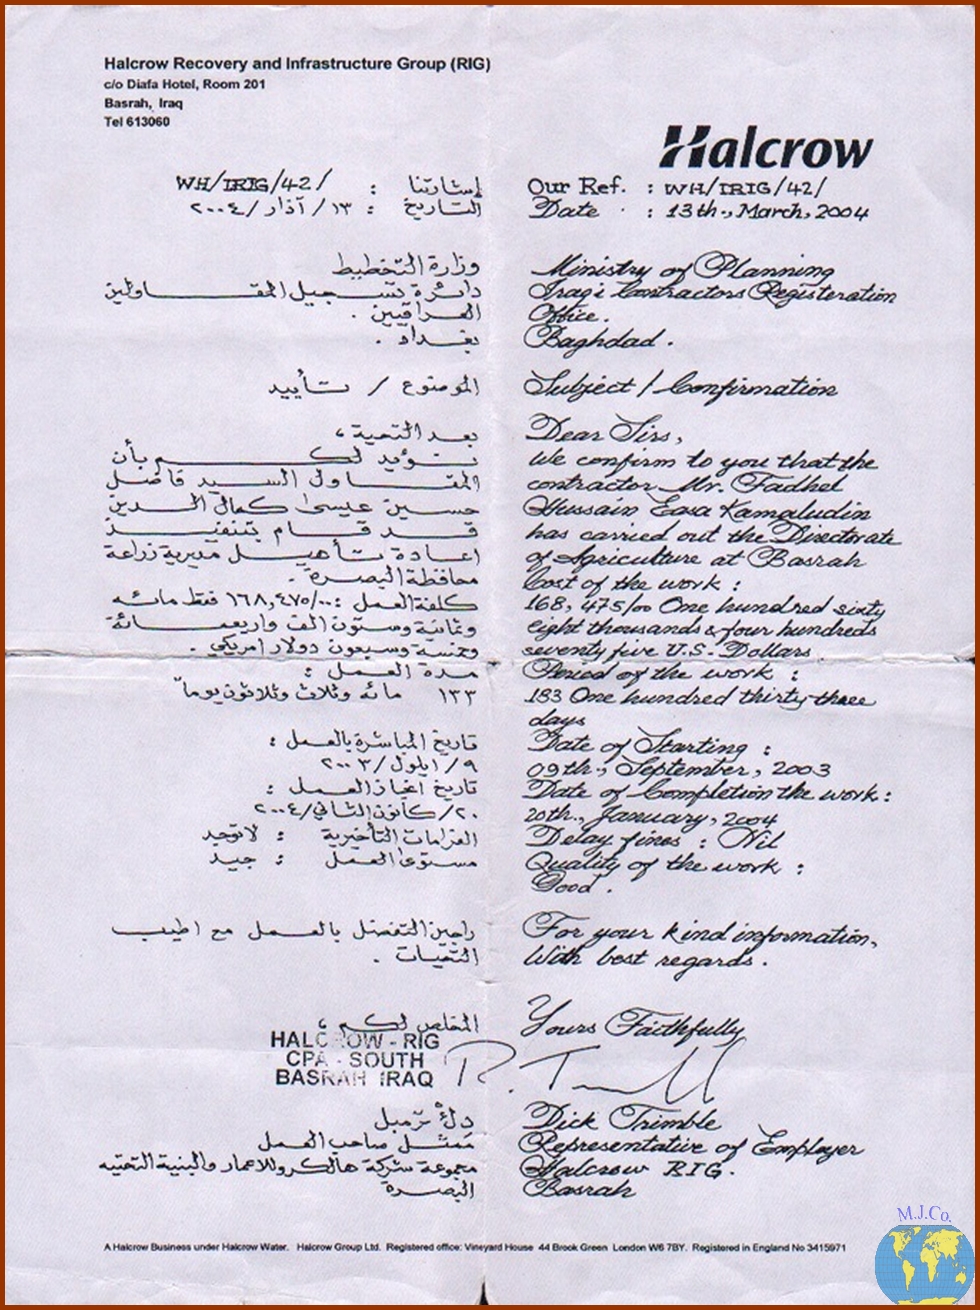 Halcrow Recovery and Infrastructure Group (RIG)
c/o Diafa Hotel, Room 201
Basrah, Iraq
Tel 613060
Halcrow
Our Ref. : WH/IRIG/42/
Date : 13th., March, 2004
Ministry of Planning
Iraqi Contractors Registeration
Office.
Baghdad.
Subject / Confirmation
Dear Sirs,
We confirm to you that the
contractor Mr. Fadhel
Hussain Easa Kamaludin
has carried out the Directorate
of Agriculture at Basrah
Cost of the work :
168,475/00 One hundred sixty
eight thousands & four hundreds
seventy five U.S. Dollars
Period of the work :
133 One hundred thirty three
days
Date of Starting :
09th., September, 2003
Date of Completion the work :
20th., January, 2004
Delay fines : Nil
Quality of the work :
Good.
For your kind information,
With best regards.
Yours Faithfully
Dick Trimble
Representative of Employer
Halcrow RIG.
Basrah
إشارتنا : WH/IRIG/42/
التاريخ : ١٣/ آذار /٢٠٠٤
وزارة التخطيط
دائرة تسجيل المقاولين
العراقيين .
بغداد .
الموضوع / تأييد
بعد التحية ،
نؤيد لكم بأن
المقاول السيد فاضل
حسين عيسى كمال الدين
قد قام بتنفيذ
اعادة تأهيل مديرية زراعة
محافظة البصرة .
كلفة العمل : ١٦٨,٤٧٥/٠٠ فقط مائه
وثمانية وستون الف واربعمائة
وخمسة وسبعون دولار امريكي .
مدة العمل :
١٣٣ مائه وثلاث وثلاثون يوماً
تاريخ المباشرة بالعمل :
٩/ ايلول /٢٠٠٣
تاريخ انجاز العمل :
٢٠/ كانون الثاني /٢٠٠٤
الغرامات التأخيرية : لاتوجد
مستوى العمل : جيد
راجين التفضل بالعمل مع اطيب
التحيات .
المخلص لكم ،
HALCROW - RIG
CPA - SOUTH
BASRAH IRAQ
دك ترمبل
ممثل صاحب العمل
مجموعة شركة هالكرو للاعمار والبنية التحتيه
البصرة
A Halcrow Business under Halcrow Water. Halcrow Group Ltd. Registered office: Vineyard House 44 Brook Green London W6 7BY. Registered in England No 3415971
M.J.Co.